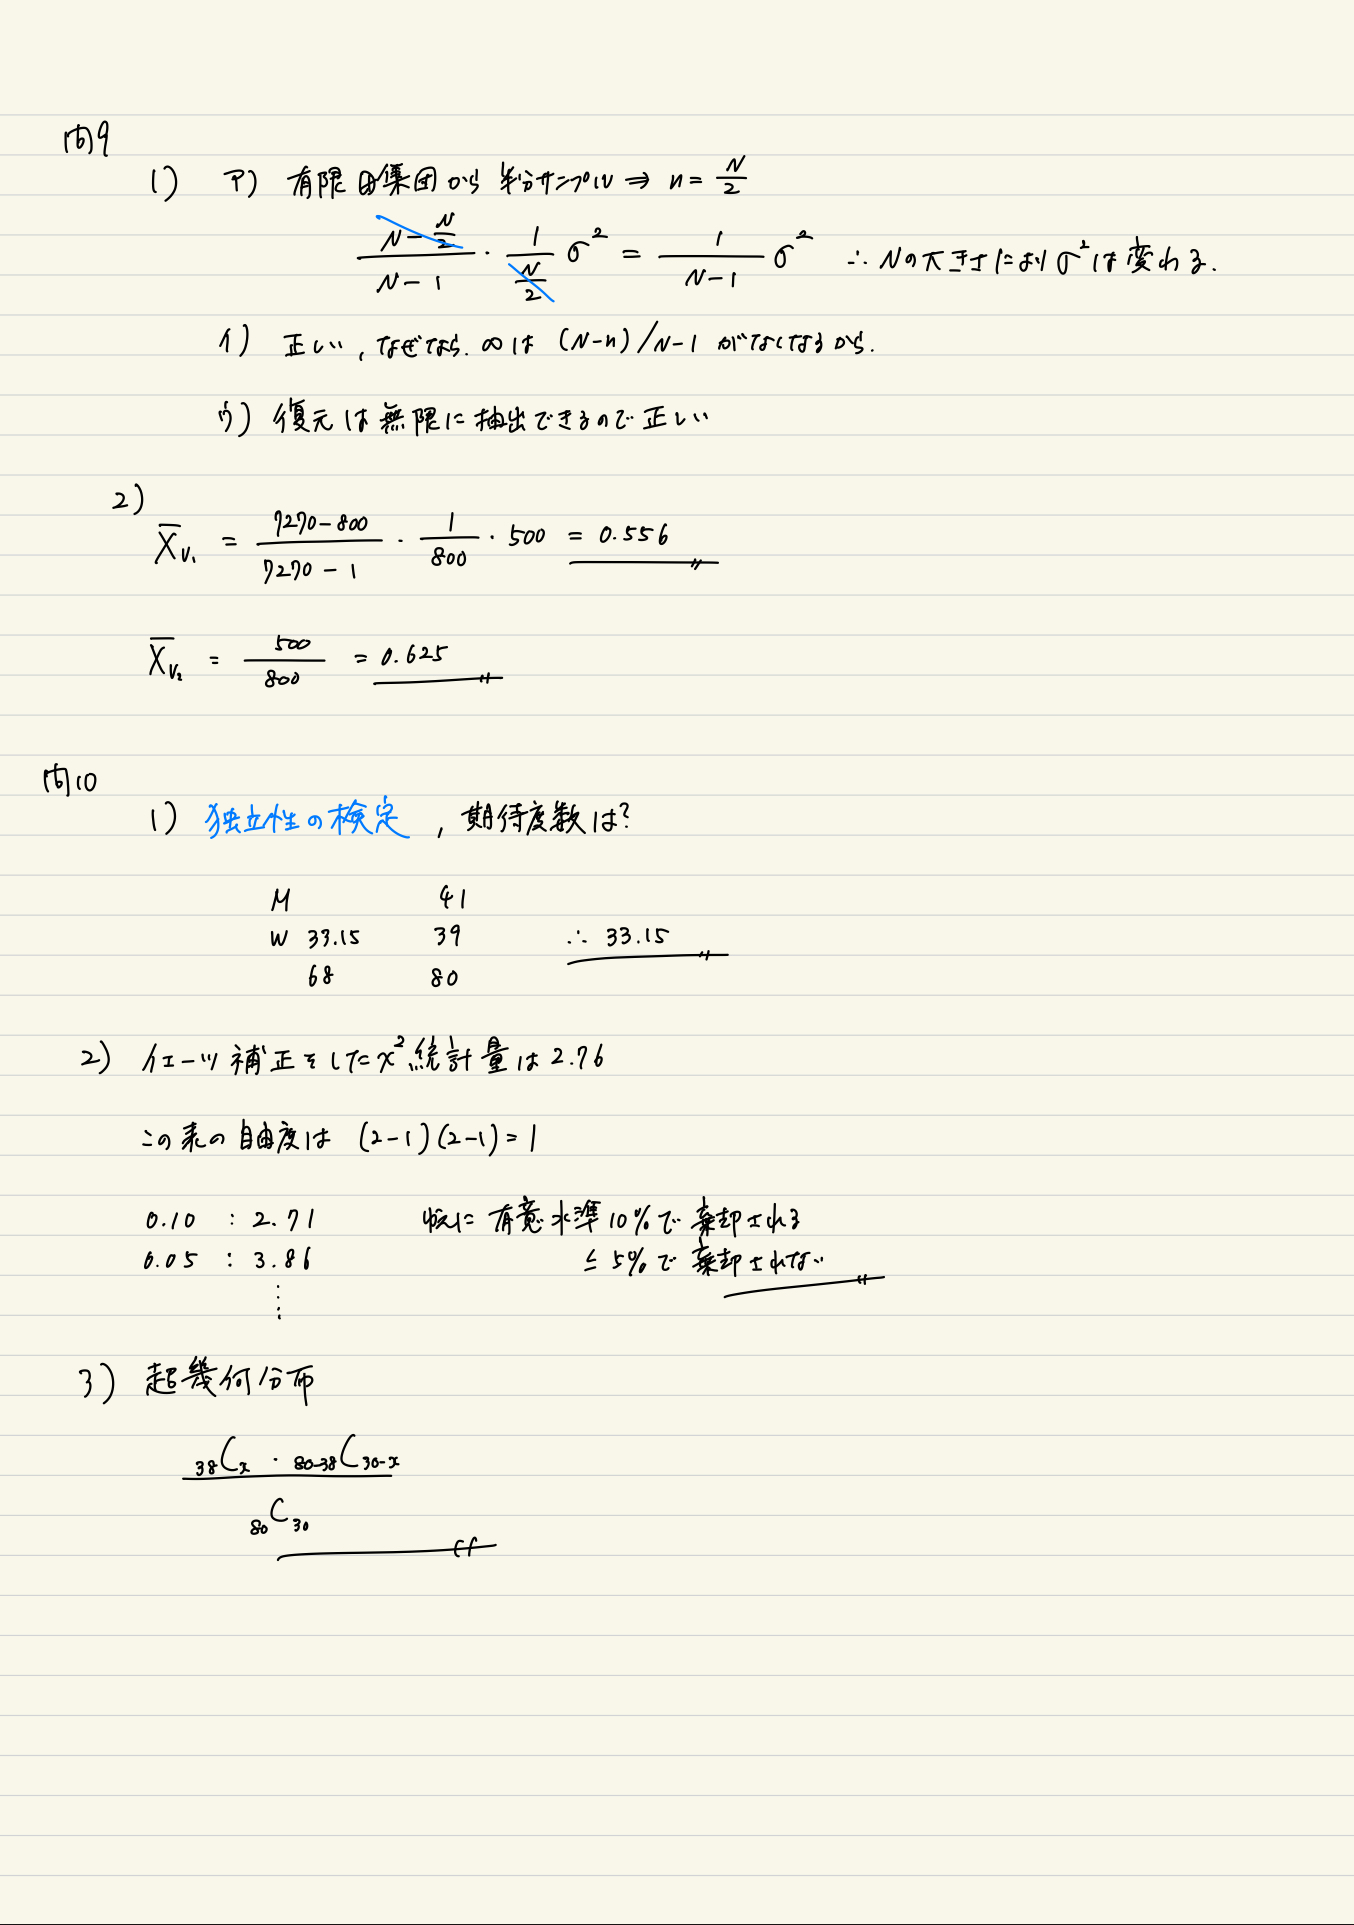 問9
1) ア) 有限母集団から半分サンプル ⇒ n = N/2
(N - N/2)/(N - 1) ・ 1/(N/2) σ² = 1/(N-1) σ² ∴ Nの大きさによりσ²は変わる.
イ) 正しい, なぜなら. ∞は (N-n)/N-1 がなくなるから.
ウ) 復元は無限に抽出できるので正しい
2)
X̄v₁ = (7270-800)/(7270-1) ・ 1/800 ・ 500 = 0.556
X̄v₂ = 500/800 = 0.625
問10
1) 独立性の検定, 期待度数は?
M 41
W 33.15 39 ∴ 33.15
68 80
2) イェーツ補正をしたx²統計量は2.76
この表の自由度は (2-1)(2-1) = 1
0.10 : 2.71 故に 有意水準10%で棄却される
0.05 : 3.86 ≤ 5%で棄却されない
⋮
3) 超幾何分布
₃₈Cₓ ・ ₈₀₋₃₈C₃₀₋ₓ
₈₀C₃₀